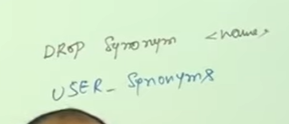 DROP Synonym <name>
USER_Synonyms